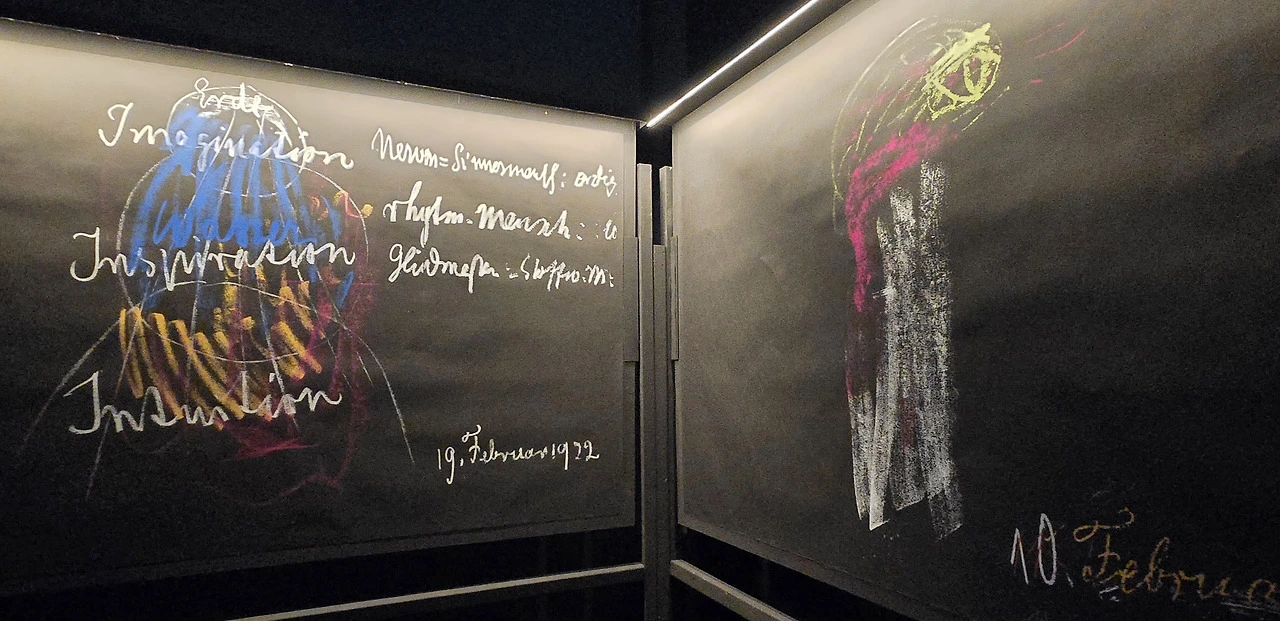 Erde
Imagination
Wasser
Inspiration
Intuition
Nerven=Sinnesmensch: erdig
rhytm. Mensch ::
Gliedmaßen=Stoffw.M:
19. Februar 1922
10. Februa